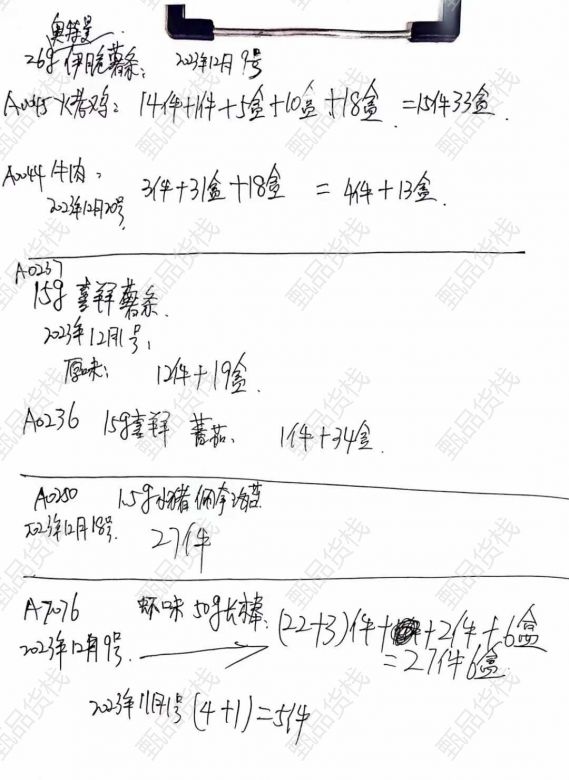 奥特曼
26g 伊脆薯条: 2023年12月9号
A0045 火烤鸡: 14件+1件+5盒+10盒+18盒 =15件33盒.
A0044 牛肉: 3件+31盒+18盒 = 4件+13盒.
2023年12月20号
A0237
15g 喜羊羊薯条.
2023年12月1号:
原味: 12件+19盒.
A0236 15g喜羊羊 蕃茄. 1件+34盒.
A0250 15g小猪佩奇
2023年12月18号. 27件
A7076 虾味 50g长棒: (22+3)件+ +2件+6盒
2023年12月9号. =27件6盒.
2023年11月1号 (4+1)=5件
甄品货栈